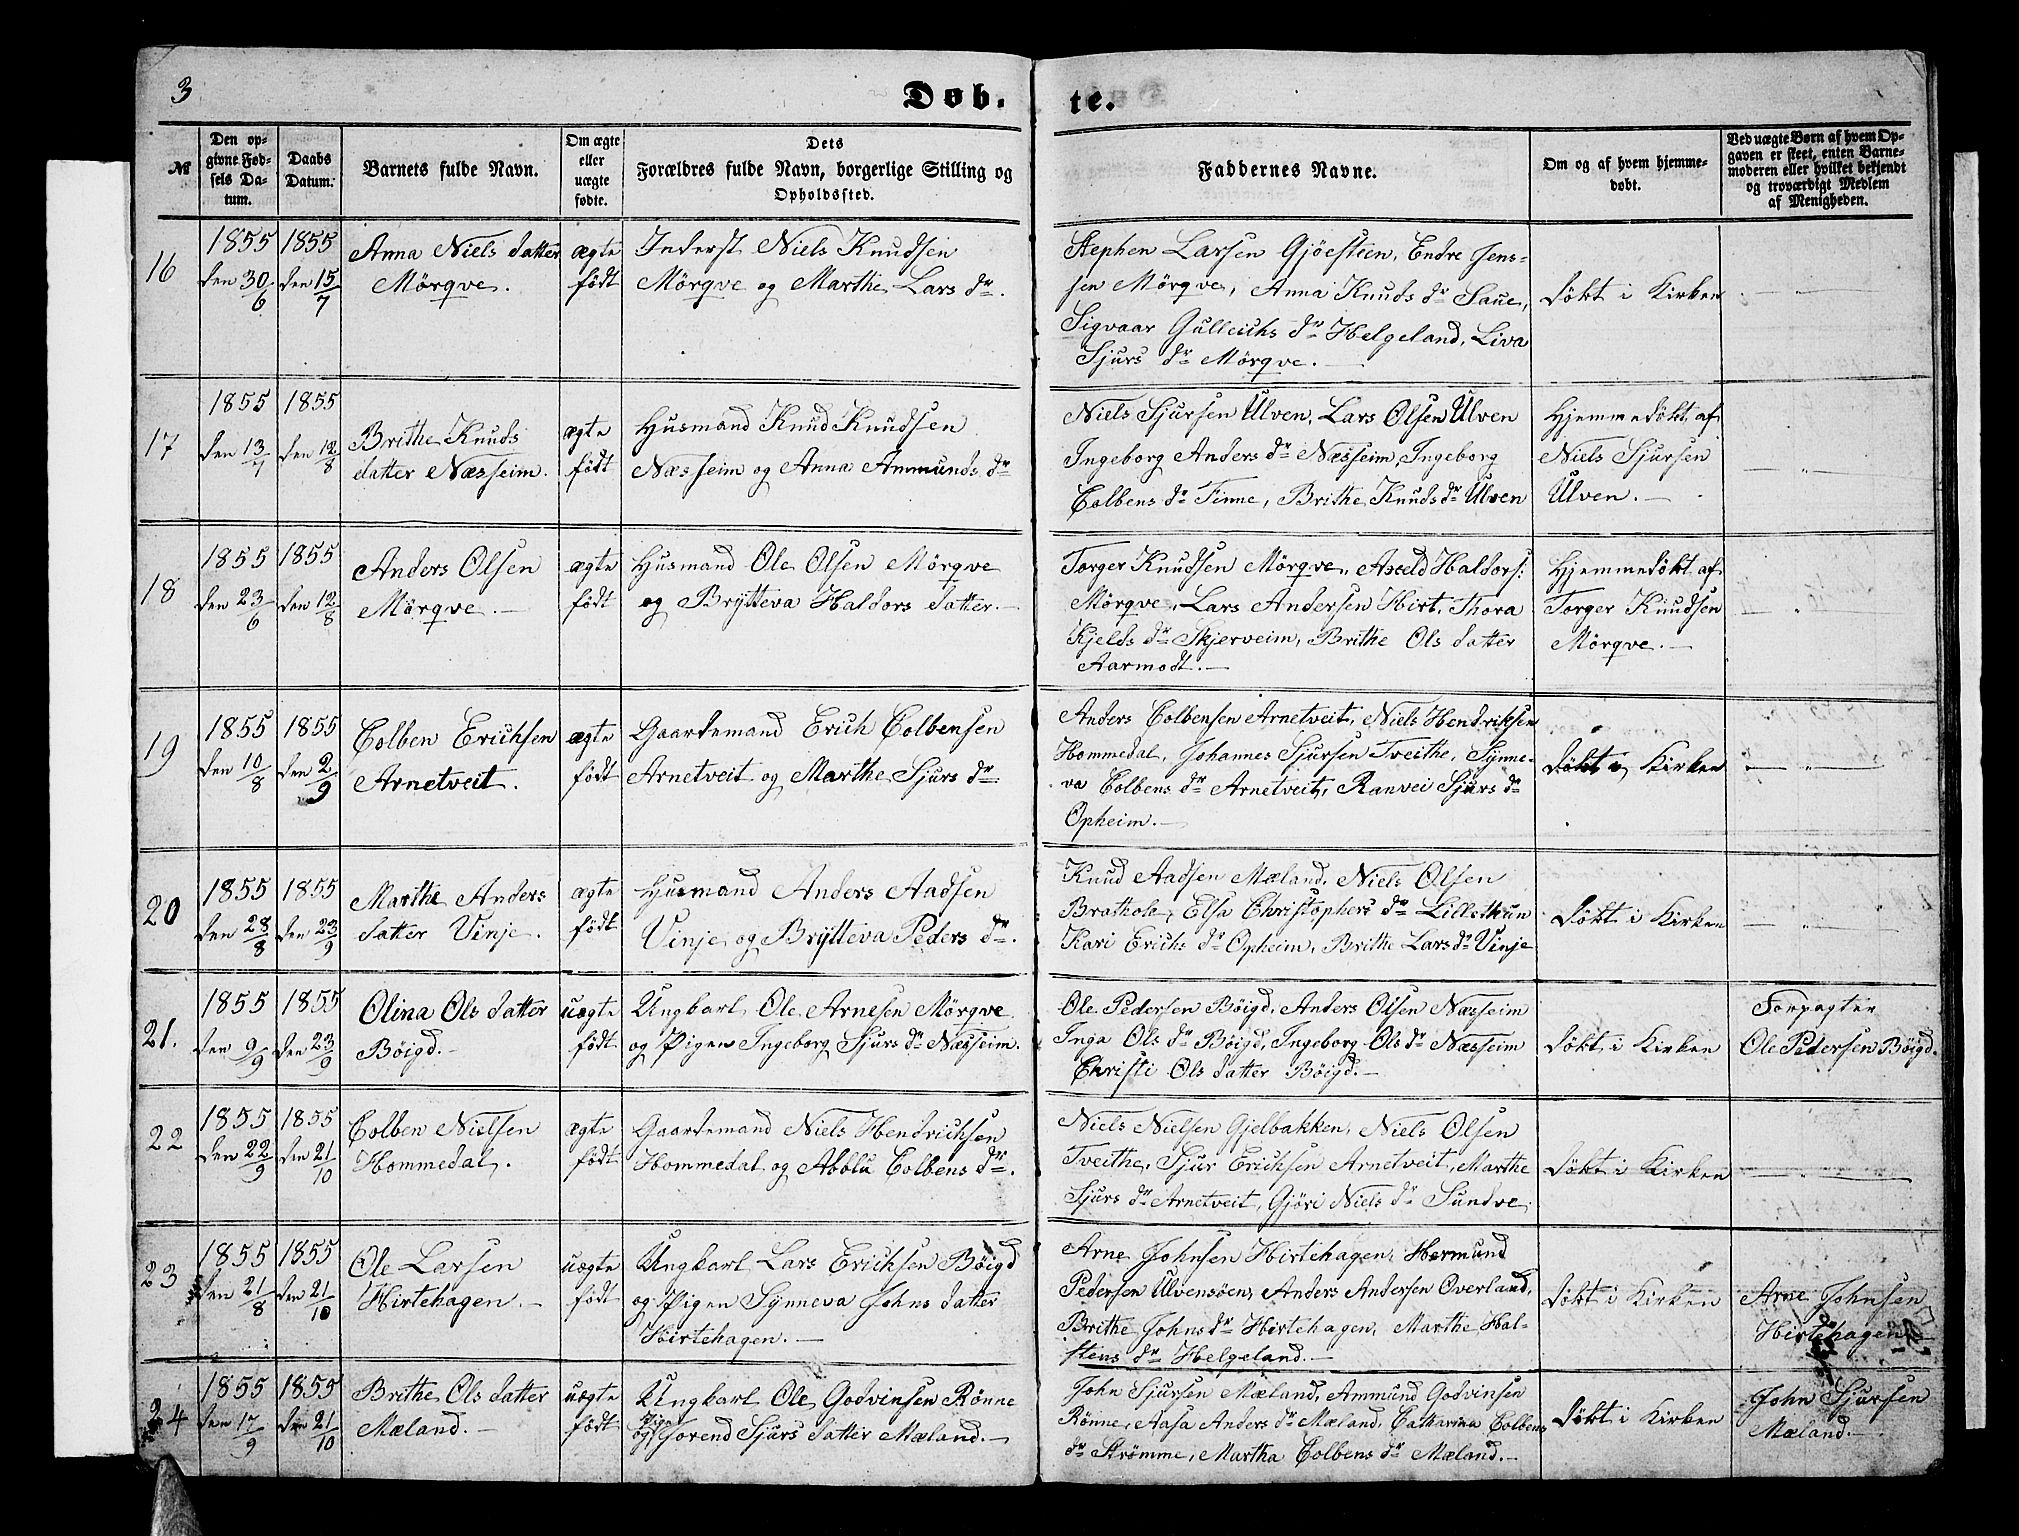 3
Døb. te.
№
Den op-
givne Fød-
sels Da-
tum.
Daabs
Datum.
Barnets fulde Navn.
Om ægte
eller
uægte
fødte.
Dets
Forældres fulde Navn, borgerlige Stilling og
Opholdssted.
Faddernes Navne.
Om og af hvem hjemme-
døbt.
Ved uægte Børn af hvem Op-
gaven er skeet, enten Barne-
moderen eller hvilket bekjendt
og troværdigt Medlem
af Menigheden.
16
1855
den 30/6
1855
den 15/7
Anna Niels datter
Mörqve.
ægte
född
Inderst Niels Knudsen
Mörqve og Marthe Lars dr.
Stephen Larsen Gjöestien, Endre Jens-
sen Mörqve, Anna Knuds dr Saue,
Sigvaar Gulleichs dr Helgeland, Liva
Sjurs dr Mörqve.
döbt i Kirken
17
1855
den 13/7
1855
den 12/8
Brithe Knuds
datter Næsseim.
ægte
födt
Husmand Knud Knudsen
Næsseim og Anna Ammunds dr
Niels Sjursen Ulven, Lars Olsen Ulven
Ingeborg Anders dr Næsseim, Ingeborg
Colbens dr Finne, Brithe Knuds dr Ulven
Hjemmedöbt af
Niels Sjursen
Ulven.
18
1855
den 23/6
1855
den 12/8
Anders Olsen
Mörqve.
ægte
födt
Husmand Ole Olsen Mörqve
og Brytteva Haldors datter.
Torger Knudsen Mörqve, Axeld Haldors:
Mörqve, Lars Andersen Hirt, Thora
Kjelds dr Skjerveim, Brithe Ols datter
Aarmodt.
Hjemmedöbt af
Torger Knudsen
Mörqve.
19
1855
den 10/8
1855
den 2/9
Colben Erichsen
Arnetveit.
ægte
födt
Gaardemand Erich Colbensen
Arnetveit og Marthe Sjurs dr
Anders Colbensen Arnetveit, Niels Hendriksen
Hommedal, Johannes Sjursen Tveithe, Synne-
va Colbens dr Arnetveit, Ranvei Sjurs dr
Opheim.
döbt i Kirken
20
1855
den 28/8
1855
den 23/9
Marthe Anders
datter Vinje.
ægte
födt
Husmand Anders Aadsen
Vinje og Brytteva Peders dr.
Knud Aadsen Mæland, Niels Olsen
Brathole, Elsa Christophers dr Lillethun
Kari Erichs dr Opheim, Brithe Lars dr Vinje
döbt i Kirken
21.
1855
den 9/9
1855
den 23/9
Olina Ols datter
Böigd.
uægte
födt
Ungkarl Ole Arnesen Mörqve
og Pigen Ingeborg Sjurs dr Næsseim.
Ole Pedersen Böigd, Anders Olsen Næsseim
Inga Ols dr Böigd, Ingeborg Ols dr Næsseim
Christi Ols datter Böigd.
döbt i Kirken
Forpagter
Ole Pedersen Böigd.
22
1855
den 22/9
1855
den 21/10
Colben Nielsen
Hommedal.
ægte
födt
Gaardemand Niels Hendrichsen
Hommedal og Abblu Colbens dr.
Niels Nielsen Gjelbakken, Niels Olsen
Tveithe, Sjur Erichsen Arnetveit, Marthe
Sjurs dr Arnetveit, Gjöri Niels dr Sundve.
döbt i Kirken
23
1855
den 21/8
1855
den 21/10
Ole Larsen
Hirtehagen.
uægte
födt
Ungkarl Lars Erichsen Böigd
og Pigen Synneva Johns datter
Hirtehagen.
Arne Johnsen Hirtehagen, Hermund
Pedersen Ulvensöen, Anders Andersen Överland,
Brithe Johns dr Hirtehagen, Marthe Hal-
stens dr Helgeland.
döbt i Kirken
Arne Johnsen
Hirtehagen
24
1855
den 17/9
1855
den 21/10
Brithe Ols datter
Mæland.
uægte
födt
Ungkarl Ole Godvinsen Rönne
og Pige Gorend Sjurs datter Mæland.
John Sjursen Mæland, Ammund Godvinsen
Rönne, Aasa Anders dr Mæland, Catharina Colbens
dr Strömme, Martha Colbens dr Mæland.
döbt i Kirken
John Sjursen
Mæland.